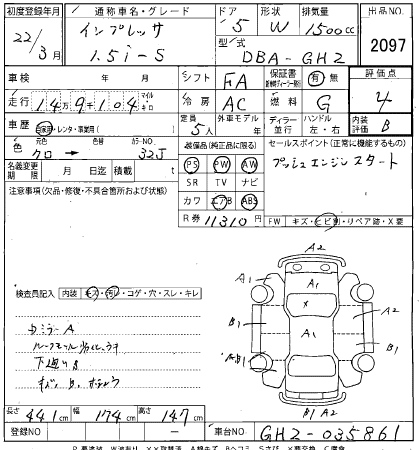 初度登録年月 通称車名・グレード ドア 形状 排気量 出品NO
22/3月 インプレッサ 1.5i-S 5 W 1500cc 2097
型式 DBA-GH2
車検 年 月 シフト FA 保証書 有 無 評価点
走行 14万9千104 マイル キロ 冷房 AC 燃料 G 4
車歴 自家用・レンタ・事業用( ) 定員 5人 外車モデル 年 ディーラー 並行 ハンドル 左・右 内装評価 B
色 元色 クロ → 色替 カラーNO 32J
装備品(純正品に限る) セールスポイント(正常に機能するもの)
名義変更期限 月 日迄 積載 t
PS PW AW プッシュエンジンスタート
注意事項(欠品・修復・不具合箇所および状態)
SR TV ナビ
カワ エアB ABS
R券 11310円
FW キズ・ヒビ割・リペア跡・X要
A2
A1 A1
X A2
B1 A1 B1
B1 A2
検査員記入 内装 キズ・汚レ・コゲ・穴・スレ・キレ
カミラーA
下廻りB
長さ 441cm 幅 174cm 高さ 147cm
登録NO 車台NO GH2-035861